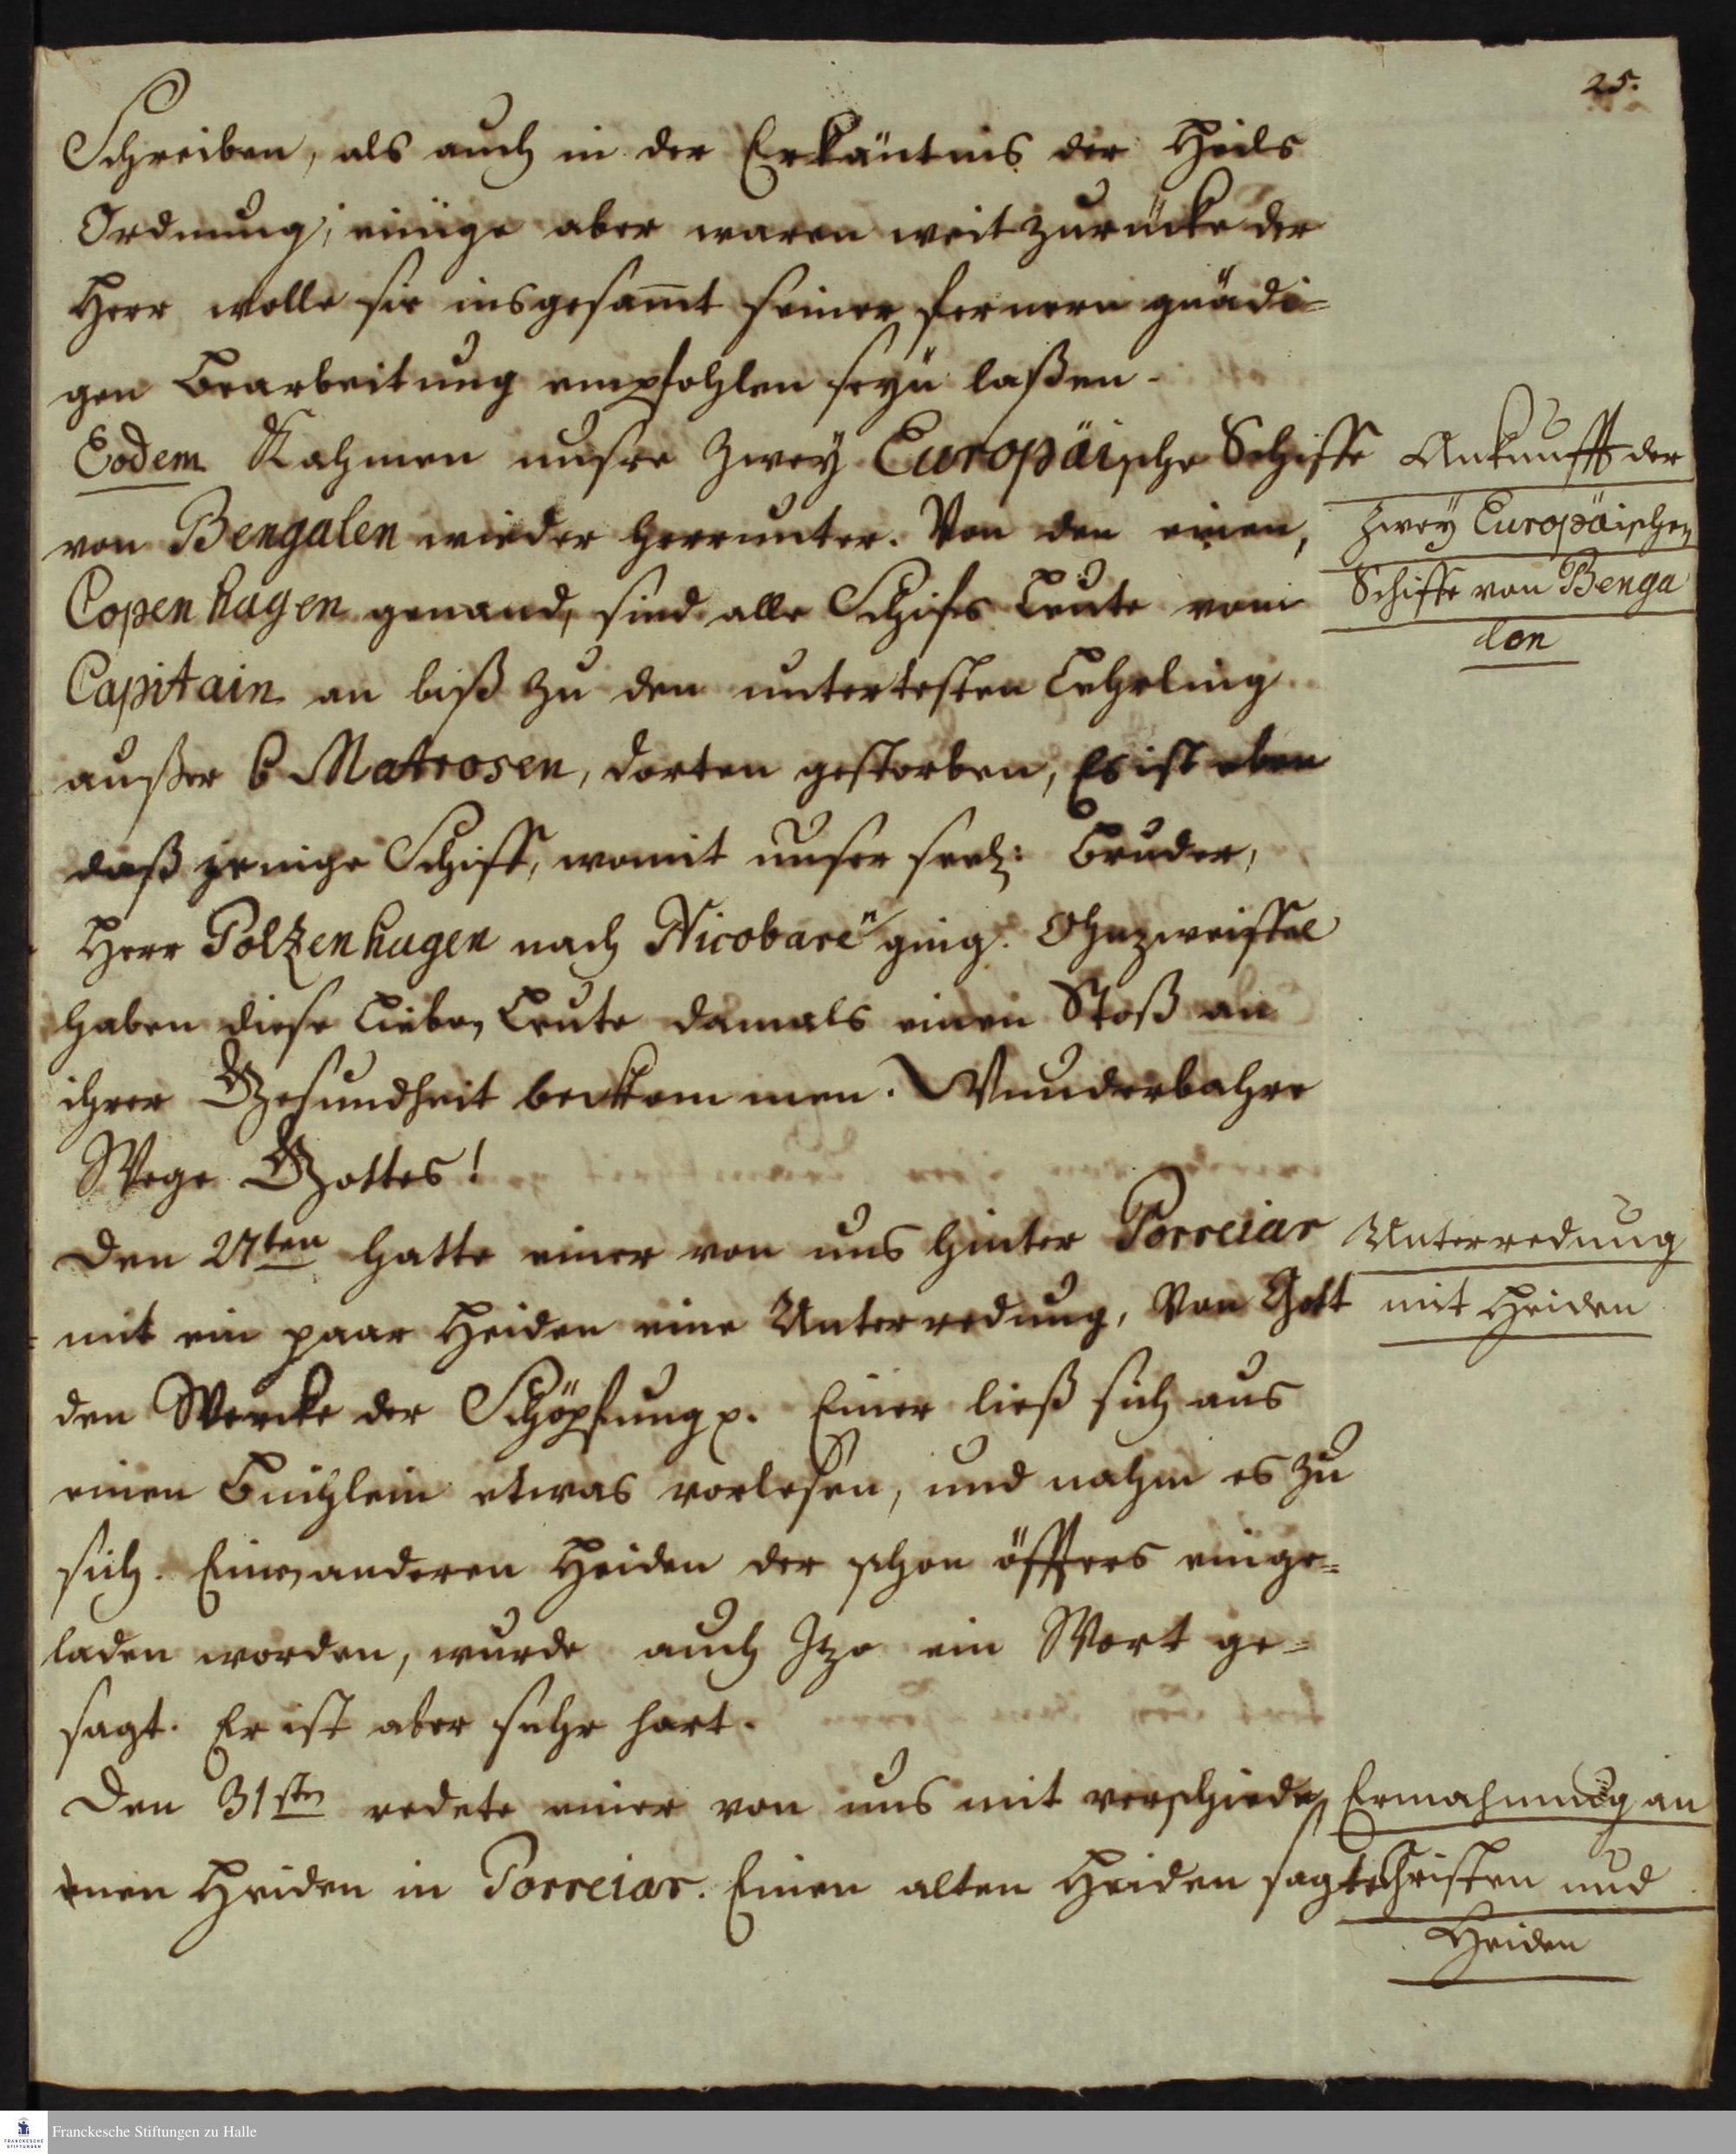 25.
Schreiben, als auch in der Erkäntnis der Heils
Ordnung; einige aber waren weit zurücke der
Herr wolle sie insgesam̅t seiner fernern gnädi=
gen Bearbeitung empfohlen seyn laßen.
Eodem Kahmen unsre zwey Europäische Schiffe
von Bengalen wieder herrunter. Von den einen,
Copenhagen genand, sind alle Schifs Leute vom
Capitain an biß zu den untertesten Lehrling
außer 6 Matrosen, dorten gestorben, Es ist eben
daß jenige Schiff, womit unser seel: Bruder,
Herr Polzenhagen nach Nicobaren ging. Ohnzweiffel
haben diese Lieben Leute damals einen Stoß an
ihrer Gesundheit beckommen. Wunderbahre
Wege Gottes!
Den 27ten hatte einer von uns hinter Porreiar
mit ein paar Heiden eine Unterredung, Von Gott
den Wercke der Schöpfung p. Einer ließ sich aus
einen Büchlein etwas vorlesen, und nahm es zu
sich. Einen anderen Heiden der schon öffters einge=
laden worden, wurde auch Itzo ein Wort ge=
sagt. Er ist aber sehr hart.
Den 31sten redete einer von uns mit verschieden
enen Heiden in Porreiar. Einen alten Heiden sagte
Ankunfft der
zwey Europäischen
Schiffe von Benga
len
Unterredung
mit Heiden
Ermahnung an
Christen und
Heiden
Franckesche Stiftungen zu Halle
FRANCKESCHE
STIFTUNGEN